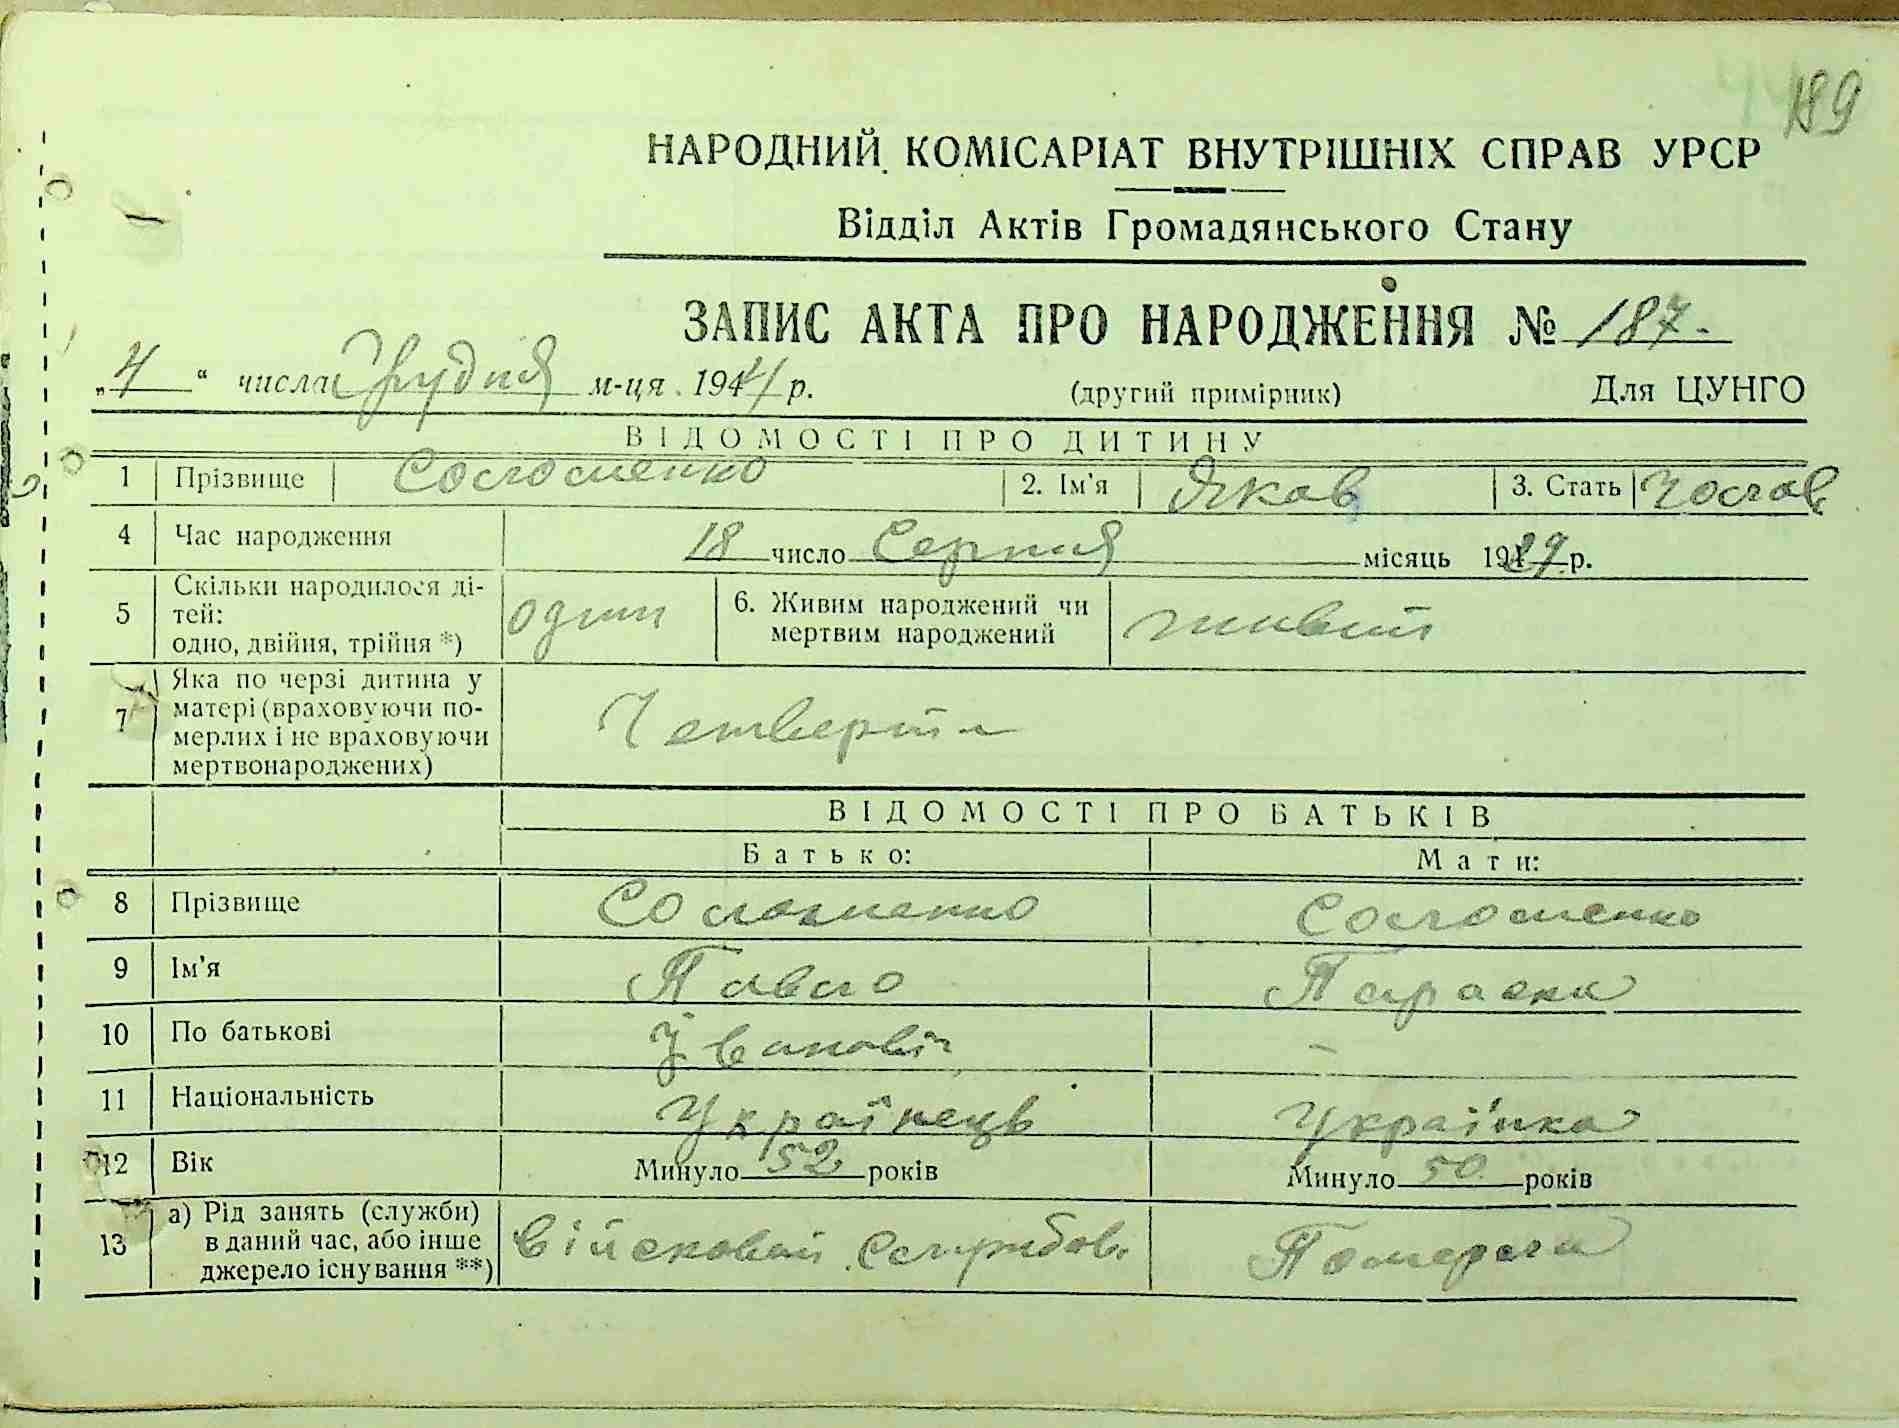 189
НАРОДНИЙ КОМІСАРІАТ ВНУТРІШНІХ СПРАВ УРСР
Відділ Актів Громадянського Стану
ЗАПИС АКТА ПРО НАРОДЖЕННЯ № 187.
„4“ числа Грудня м-ця 1944 р. (другий примірник) Для ЦУНГО
ВІДОМОСТІ ПРО ДИТИНУ
1 Прізвище Соломенко 2. Ім'я Яков 3. Стать Чолов
4 Час народження 18 число Серпня місяць 1929 р.
5 Скільки народилося ді-
тей:
одно, двійня, трійня *) один 6. Живим народжений чи
мертвим народжений живим
7 Яка по черзі дитина у
матері (враховуючи по-
мерлих і не враховуючи
мертвонароджених) Четверта
ВІДОМОСТІ ПРО БАТЬКІВ
Батько: Мати:
8 Прізвище Соломенко Соломенко
9 Ім'я Павло Параска
10 По батькові Іванович –
11 Національність Українець Українка
12 Вік Минуло 52 років Минуло 50 років
13 а) Рід занять (служби)
в даний час, або інше
джерело існування **) Військовий службов. Померла